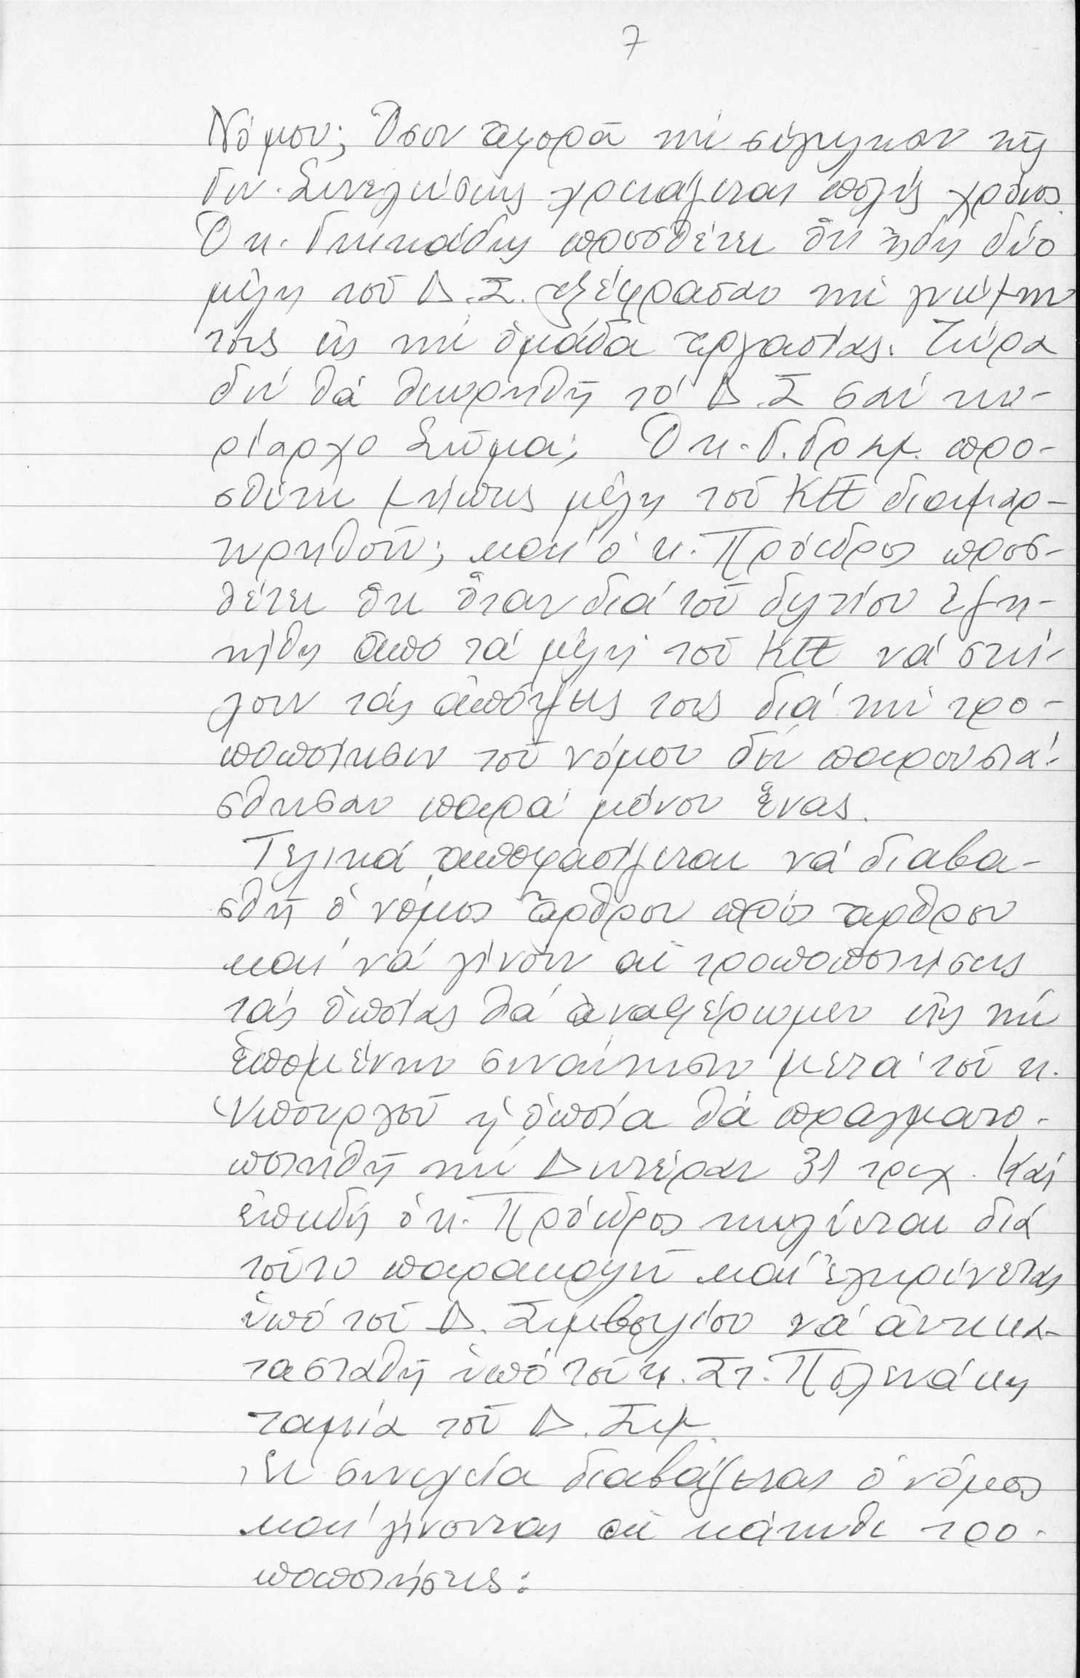 7
Νόμου; Ὅσον ἀφορᾶ τήν σύγκλησιν τῆς
Γεν. Συνελεύσεως χρειάζεται πολύς χρόνος.
Ὁ κ. προσθέτει ὅτι ἤδη δύο
μέλη τοῦ Δ.Σ. ἐξέφρασαν τήν γνώμην
τους εἰς τήν ὁμάδα ἐργασίας. Τώρα
δέν θά θεωρηθῆ τό Δ.Σ σάν κυ-
ρίαρχο Σῶμα; Ὁ κ. Γ. προ-
σθέτει μήπως μέλη τοῦ ΚΕΕ διαμαρ-
τυρηθοῦν; καί ὁ κ. Πρόεδρος προσ-
θέτει ὅτι ὅταν διά τοῦ δελτίου ἐζη-
τήθη ἀπό τά μέλη τοῦ ΚΕΕ νά στεί-
λουν τάς ἀπόψεις τους διά τήν τρο-
ποποίησιν τοῦ νόμου δέν παρουσιά-
σθησαν παρά μόνον ἕνας.
Τελικά ἀποφασίζεται νά διαβα-
σθῆ ὁ νόμος ἄρθρον πρός ἄρθρον
καί νά γίνουν αἱ τροποποιήσεις
τάς ὁποίας θά ἀναφέρωμεν εἰς τήν
ἑπομένην συνάντησιν μετά τοῦ κ.
Ὑπουργοῦ ἡ ὁποία θά πραγματο-
ποιηθῆ τήν Δευτέραν 31 τρεχ. Καί
ἐπειδή ὁ κ. Πρόεδρος κωλύεται διά
τοῦτο παρακαλεῖ καί ἐγκρίνεται
ὑπό τοῦ Δ. Συμβουλίου νά ἀντικα-
τασταθῆ ὑπό τοῦ κ. Στ. Πολενάκη
ταμία τοῦ Δ. Συμ.
Ἐν συνεχεία διαβάζεται ὁ νόμος
καί γίνονται αἱ κάτωθι τρο-
ποποιήσεις: